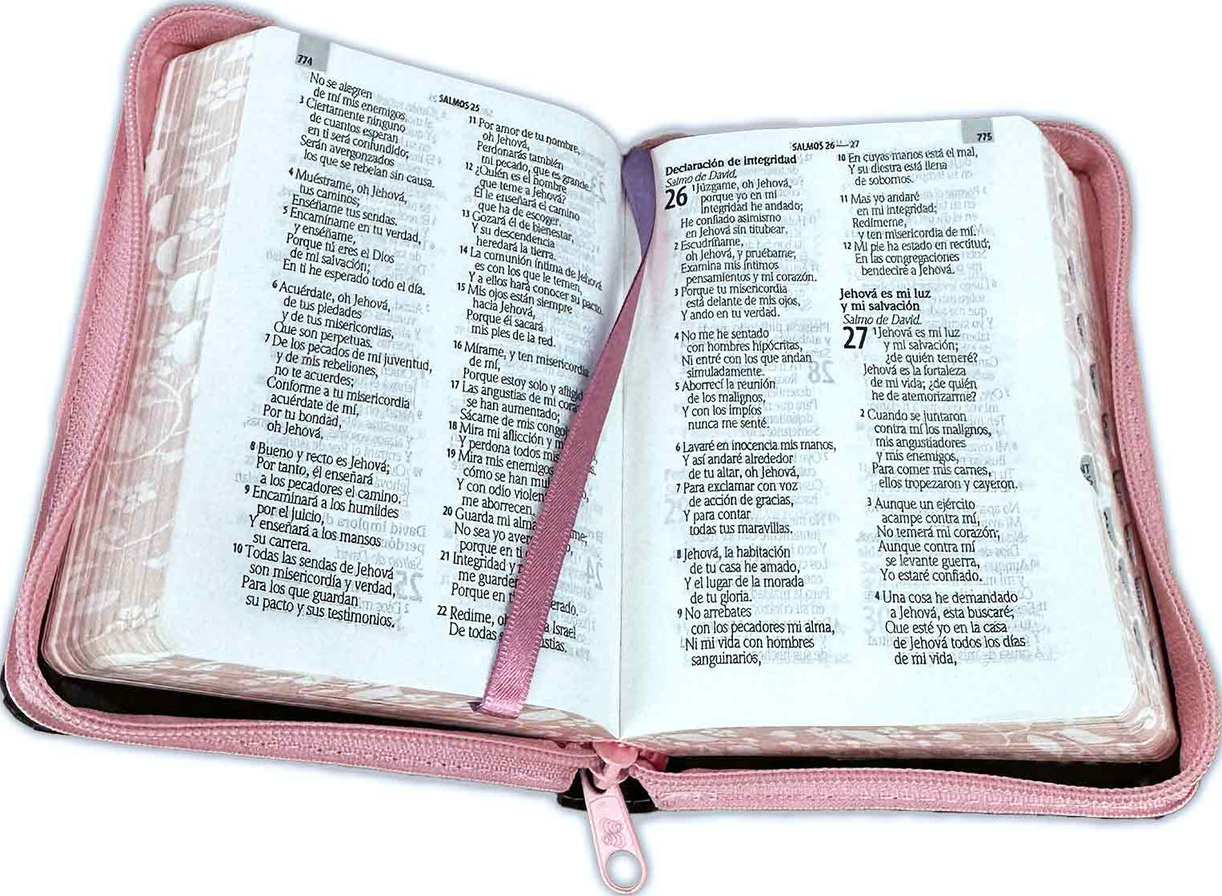 774
SALMOS 25
No se alegren
de mí mis enemigos.
3 Ciertamente ninguno
de cuantos esperan
en ti será confundido;
Serán avergonzados
los que se rebelan sin causa.
4 Muéstrame, oh Jehová,
tus caminos;
Enséñame tus sendas.
5 Encamíname en tu verdad,
y enséñame,
Porque tú eres el Dios
de mi salvación;
En ti he esperado todo el día.
6 Acuérdate, oh Jehová,
de tus piedades
y de tus misericordias,
Que son perpetuas.
7 De los pecados de mi juventud,
y de mis rebeliones,
no te acuerdes;
Conforme a tu misericordia
acuérdate de mí,
Por tu bondad,
oh Jehová,
8 Bueno y recto es Jehová;
Por tanto, él enseñará
a los pecadores el camino.
9 Encaminará a los humildes
por el juicio,
Y enseñará a los mansos
su carrera.
10 Todas las sendas de Jehová
son misericordia y verdad,
Para los que guardan
su pacto y sus testimonios.
11 Por amor de tu nombre,
oh Jehová,
Perdonarás también
mi pecado, que es grande.
12 ¿Quién es el hombre
que teme a Jehová?
Él le enseñará el camino
que ha de escoger.
13 Gozará él de bienestar,
Y su descendencia
heredará la tierra.
14 La comunión íntima de Jehová
es con los que le temen,
Y a ellos hará conocer su pacto.
15 Mis ojos están siempre
hacia Jehová,
Porque él sacará
mis pies de la red.
16 Mírame, y ten misericordia
de mí,
Porque estoy solo y
17 Las angustias de mi
se han aumentado;
Sácame de mis
18 Mira mi aflicción y
Y perdona todos mis
19 Mira mis enemigos
cómo se han
Y con odio
me aborrecen.
20 Guarda mi alma
No sea yo
porque en ti
21 Integridad y
me
Porque en
22 Redime, a Israel
De todas
775
SALMOS 26 27
Declaración de integridad
Salmo de David.
26 1 Júzgame, oh Jehová,
porque yo en mi
integridad he andado;
He confiado asimismo
en Jehová sin titubear.
2 Escudríñame,
oh Jehová, y pruébame;
Examina mis íntimos
pensamientos y mi corazón.
3 Porque tu misericordia
está delante de mis ojos,
Y ando en tu verdad.
4 No me he sentado
con hombres hipócritas,
Ni entré con los que andan
simuladamente.
5 Aborrecí la reunión
de los malignos,
Y con los impíos
nunca me senté.
6 Lavaré en inocencia mis manos,
Y así andaré alrededor
de tu altar, oh Jehová,
7 Para exclamar con voz
de acción de gracias,
Y para contar
todas tus maravillas.
8 Jehová, la habitación
de tu casa he amado,
Y el lugar de la morada
de tu gloria.
9 No arrebates
con los pecadores mi alma,
Ni mi vida con hombres
sanguinarios,
10 En cuyas manos está el mal,
Y su diestra está llena
de sobornos.
11 Mas yo andaré
en mi integridad;
Redímeme,
y ten misericordia de mí.
12 Mi pie ha estado en rectitud;
En las congregaciones
bendeciré a Jehová.
Jehová es mi luz
y mi salvación
Salmo de David.
27 1 Jehová es mi luz
y mi salvación;
¿de quién temeré?
Jehová es la fortaleza
de mi vida; ¿de quién
he de atemorizarme?
2 Cuando se juntaron
contra mí los malignos,
mis angustiadores
y mis enemigos,
Para comer mis carnes,
ellos tropezaron y cayeron.
3 Aunque un ejército
acampe contra mí,
No temerá mi corazón;
Aunque contra mí
se levante guerra,
Yo estaré confiado.
4 Una cosa he demandado
a Jehová, esta buscaré;
Que esté yo en la casa
de Jehová todos los días
de mi vida,